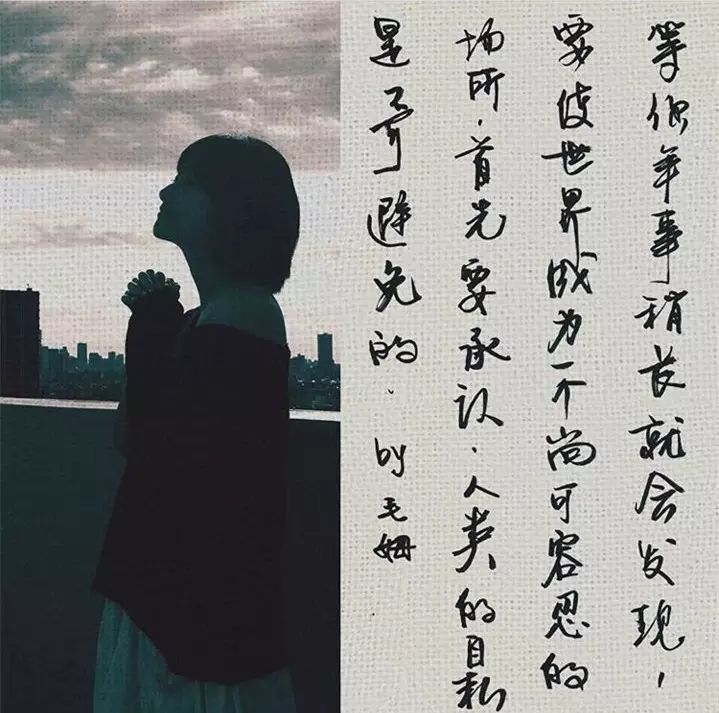 等你年事稍长就会发现，
要使世界成为一个尚可容忍的
场所，首先要承认，人类的自私
是不可避免的．by毛姆